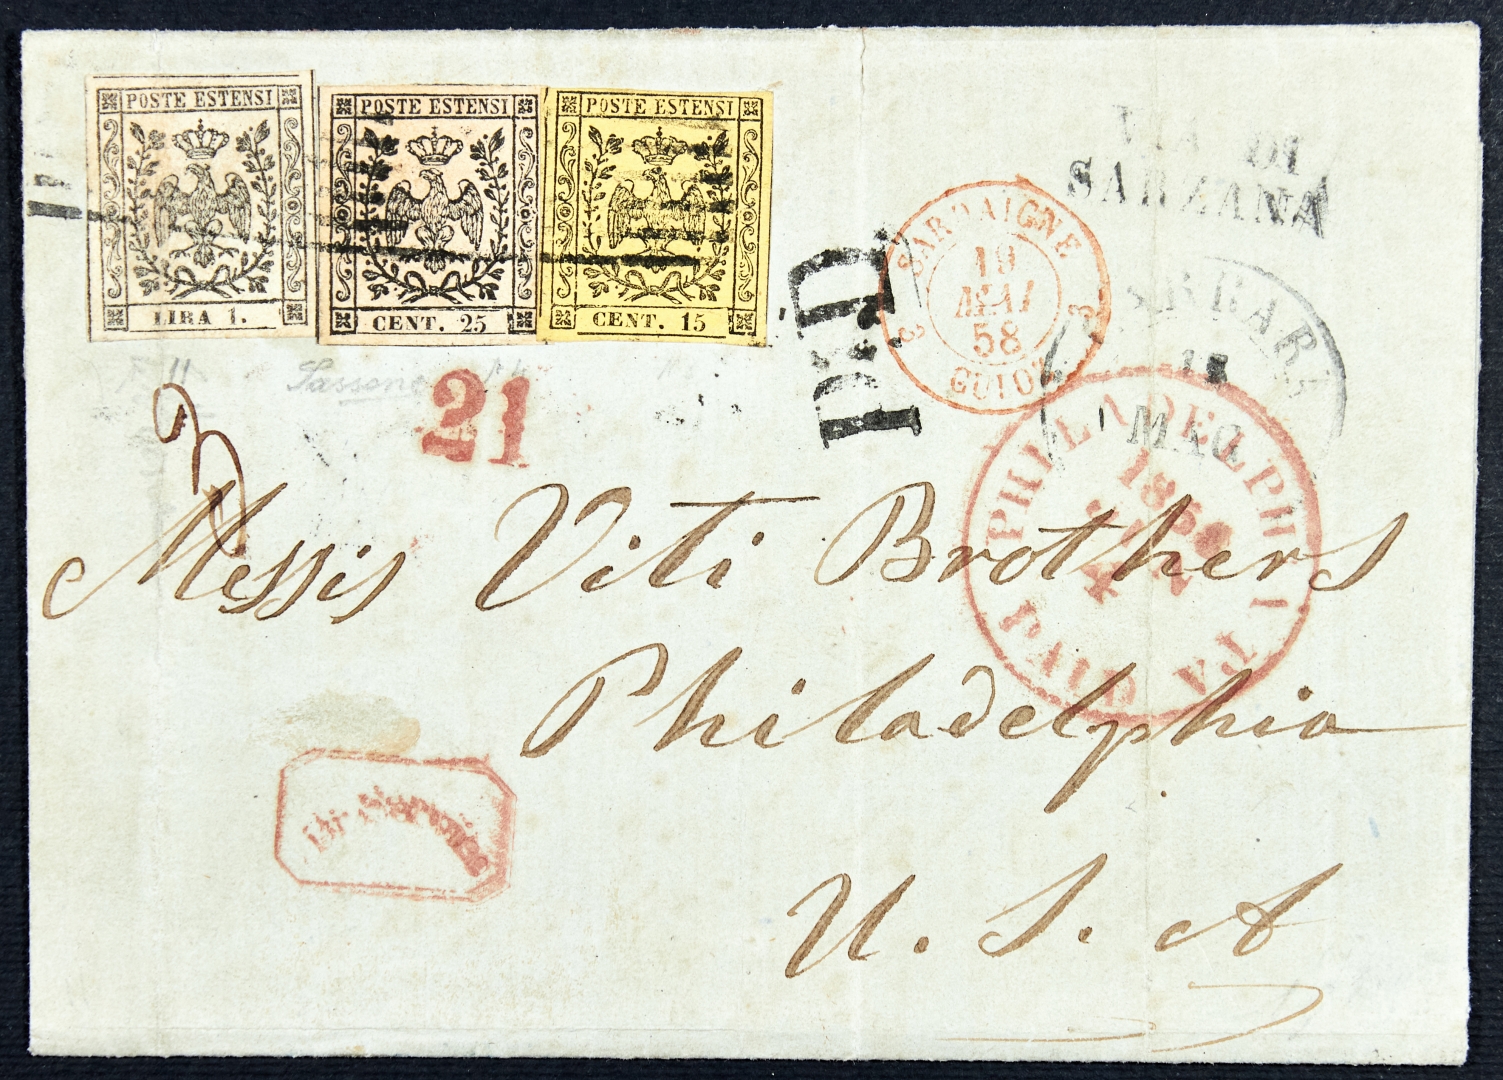 POSTE ESTENSI
LIRA 1.
POSTE ESTENSI
CENT. 25
POSTE ESTENSI
CENT. 15
VIA DI
SARZANA
P.D.
3 SARDAIGNE 3
19
MAI
58
CULOZ
CARRARA
MAG
21
PHILADELPHIA PA
PAID
185
Sassone
Messis Viti Brothers
Philadelphia
U. S. A
Br. Service